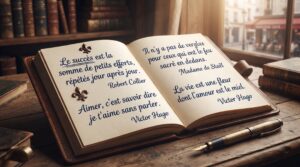 Le succès est la
somme de petits efforts,
répétés jour après jour.
Robert Collier
Aimer, c'est savoir dire
je t'aime sans parler.
Victor Hugo
Il n'y a pas de vergles
pour ceux qui ont le feu
sacré en dedans.
Madame de Staël
La vie est une fleur
dont l'amour est le miel.
Victor Hugo